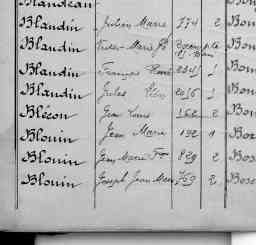 Blandeau
Blandin Julien Marie 774 2 Bou
Blandin Marie Bou
Blandin François René 2341 1 Bou
Blandin Jules 2016 1 Bou
Blécon Jean Louis 162 2 Bou
Blouin Jean Marie 192 1 Bos
Blouin Jean Marie Fois 839 2 Bos
Blouin Joseph Jean Marie 769 2 Bos